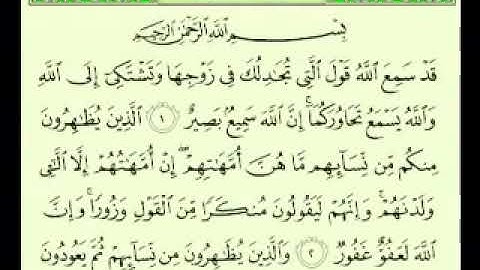 بِسْمِ اللَّهِ الرَّحْمَٰنِ الرَّحِيمِ
قَدْ سَمِعَ اللَّهُ قَوْلَ الَّتِي تُجَادِلُكَ فِي زَوْجِهَا وَتَشْتَكِي إِلَى اللَّهِ
وَاللَّهُ يَسْمَعُ تَحَاوُرَكُمَا ۚ إِنَّ اللَّهَ سَمِيعٌ بَصِيرٌ ١ الَّذِينَ يُظَاهِرُونَ
مِنكُم مِّن نِّسَائِهِم مَّا هُنَّ أُمَّهَاتِهِمْ ۖ إِنْ أُمَّهَاتُهُمْ إِلَّا اللَّائِي
وَلَدْنَهُمْ ۚ وَإِنَّهُمْ لَيَقُولُونَ مُنكَرًا مِّنَ الْقَوْلِ وَزُورًا ۚ وَإِنَّ
اللَّهَ لَعَفُوٌّ غَفُورٌ ٢ وَالَّذِينَ يُظَاهِرُونَ مِن نِّسَائِهِمْ ثُمَّ يَعُودُونَ